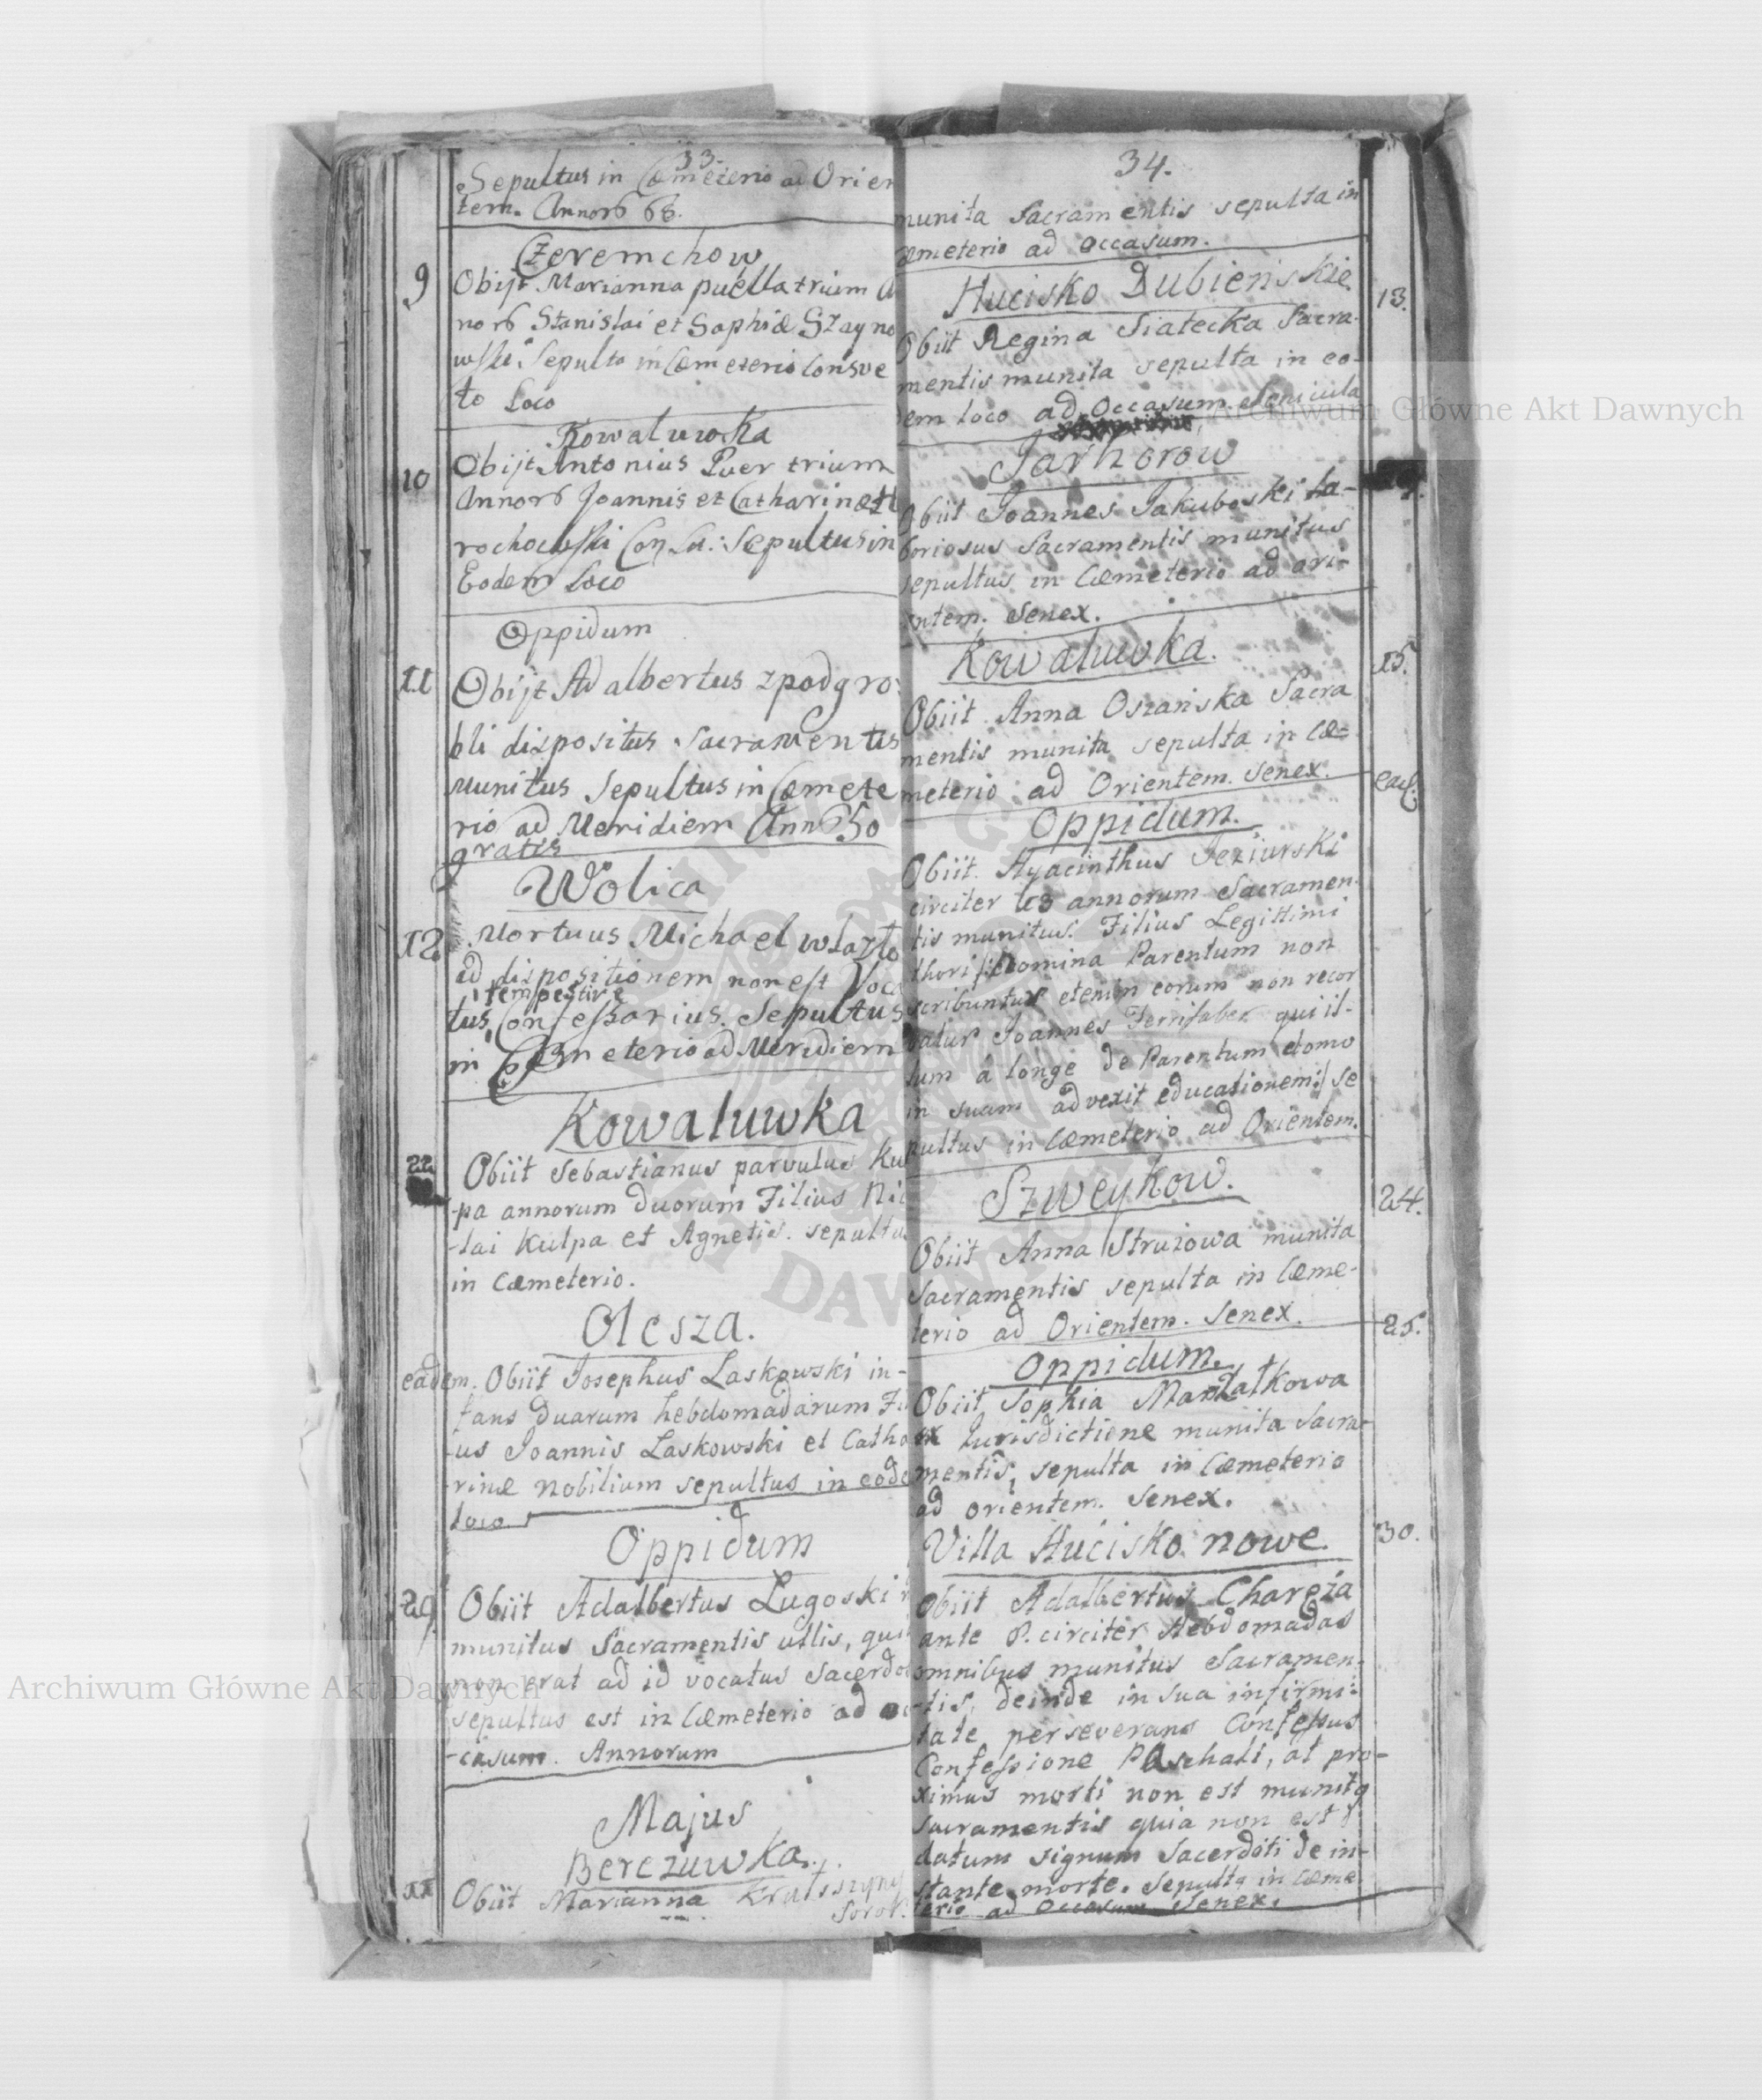 33.
Sepultus in Cæmeterio ad Orien
tem. Annorб 68.
Czeremchow
9
Obijt Marianna puella trium A
norб Stanislai et Sophiæ Szayno
wski Sepulta in Cæmeterio Consve
to Loco
Kowaluwka
10
Obijt Antonius Puer trium
Annorб Joannis et Catharinæ
rochowski Con Lu: Sepultus in
Eodem Loco
Oppidum
11
Obijt Adalbertus zpodgro
bli dispositus Sacramentis
Munitus Sepultus in Cæmete
rio ad Meridiem Annб 50
gratis
Wolica
12
Mortuus Michael wlazlo
ad dispositionem non est Voca
tempestive
tus Confessarius. Sepultus
in Cæmeterio ad Meridiem
Kowaluwka
22
Obiit Sebastianus parvulus Ku
-pa annorum duorum Filius Nic
-lai Kulpa et Agnetis. sepultus
in Cæmeterio.
Olesza.
eadem. Obiit Josephus Laskowski in-
fans duarum hebdomadarum Fi
-us Joannis Laskowski et Catha
-rinæ Nobilium sepultus in eode
loco
Oppidum
29.
Obiit Adalbertus Lugoski
munitus Sacramentis ullis, qui
non erat ad id vocatus Sacerdo
sepultus est in Cæmeterio ad oc
-casum. Annorum
Majus
Berezuwka.
11
Obiit Marianna
Soror.
34.
munita Sacramentis sepulta in
Cæmeterio ad Occasum.
Hucisko Dubienskie
13.
Obiit Regina Siatecka Sacra-
mentis munita sepulta in eo-
dem loco ad Occasum
Jarhorow
Obiit Joannes Jakuboski La-
boriosus Sacramentis munitus
sepultus in Cæmeterio ad ori-
entem. Senex.
Kowaluwka.
15.
Obiit Anna Oszańska Sacra
mentis munita sepulta in Cæ-
meterio ad Orientem. Senex.
ead.
Oppidum.
Obiit Hyacinthus Jeziurski
circiter annorum Sacramen-
tis munitus. Filius Legittimi
thori /: Nomina Parentum non
scribuntur etenim eorum non recor
datur Joannes Ferrifaber qui il-
lum à longe de Parentum domo
in suam advexit educationem :/ se
pultus in Cæmeterio ad Orientem.
Szweykow.
24.
Obiit Anna Struzowa munita
Sacramentis sepulta in Cæme-
terio ad Orientem. Senex.
25.
Oppidum.
Obiit Sophia Marszałkowa
ex Jurisdictione munita Sacra-
mentis, sepulta in Cæmeterio
ad orientem. Senex.
Villa Hucisko nowe.
30.
Obiit Adalbertus Charęza
ante 8. circiter Hebdomadas
omnibus munitus Sacramen-
-tis, deinde in sua infirmi-
tate perseverans Confessus
Confessione Paschali, at pro-
ximus morti non est munitq
Sacramentis quia non est
datum signum Sacerdoti de in-
stante morte. Sepultq in Cæme
terio ad Occasum Senex.
Archiwum Główne Akt Dawnych
Archiwum Główne Akt Dawnych